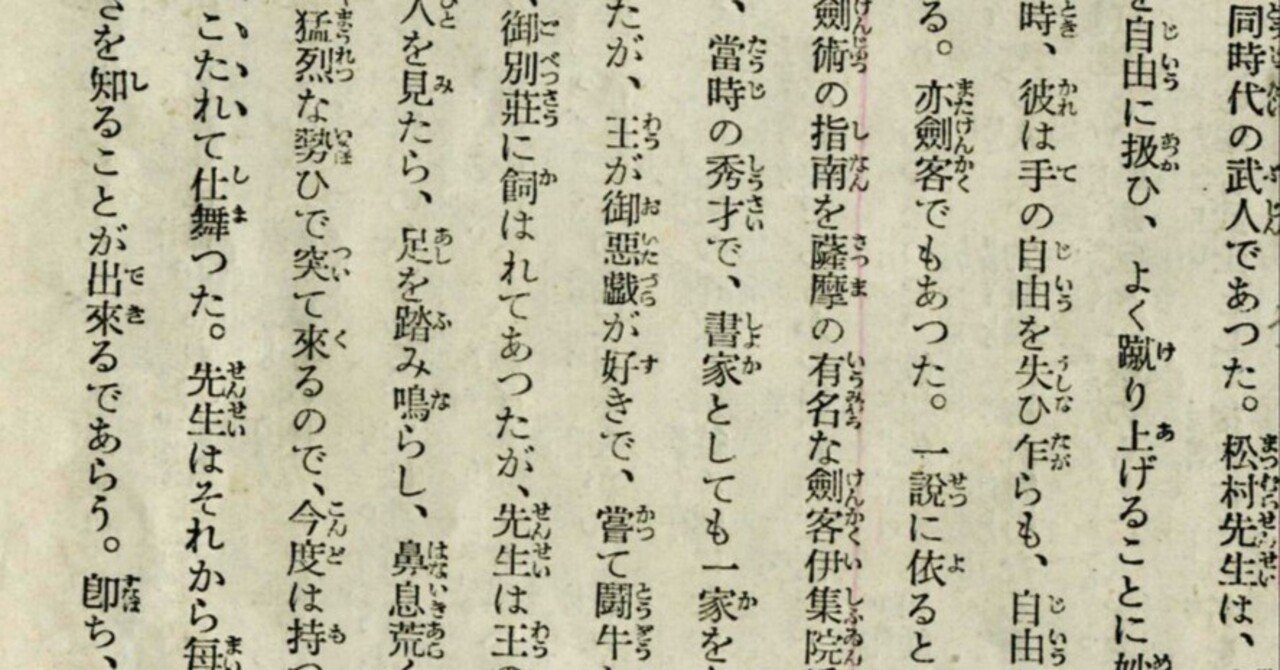 同時代の武人であつた。松村先生は、
自由に扱ひ、よく蹴り上げることに妙
時、彼は手の自由を失ひ乍らも、自由
る。亦劍客でもあつた。一說に依ると
劍術の指南を薩摩の有名な劍客伊集院
、當時の秀才で、書家としても一家を
たが、王が御惡戲が好きで、嘗て鬪牛
、御別莊に飼はれてあつたが、先生は王の
人を見たら、足を踏み鳴らし、鼻息荒く
猛烈な勢ひで突て來るので、今度は持つ
こたれて仕舞つた。先生はそれから每
さを知ることが出來るであらう。卽ち、